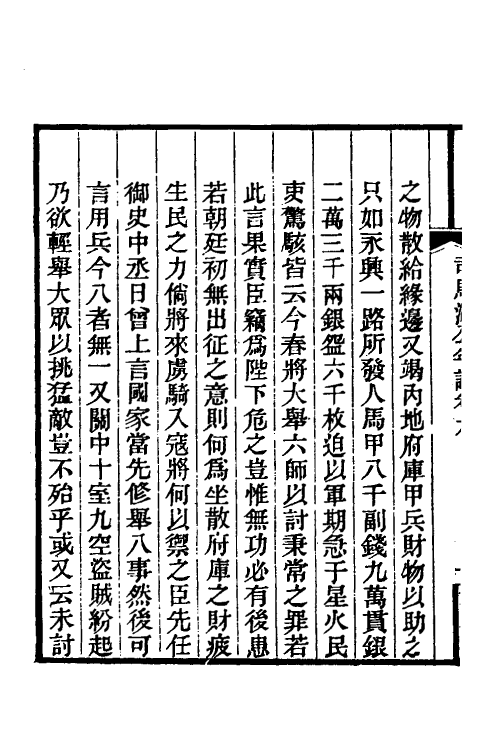 之物散給緣邊又竭內地府庫甲兵財物以助之
只如永興一路所發人馬甲八千副錢九萬貫銀
二萬三千兩銀盌六千枚迫以軍期急于星火民
吏驚駭皆云今春將大舉六師以討秉常之罪若
此言果實臣竊為陛下危之豈惟無功必有後患
若朝廷初無出征之意則何為坐散府庫之財疲
生民之力倘將來虜騎入寇將何以禦之臣先任
御史中丞日曾上言國家當先修舉八事然後可
言用兵今八者無一又關中十室九空盜賊紛起
乃欲輕舉大眾以挑猛敵豈不殆乎或又云未討